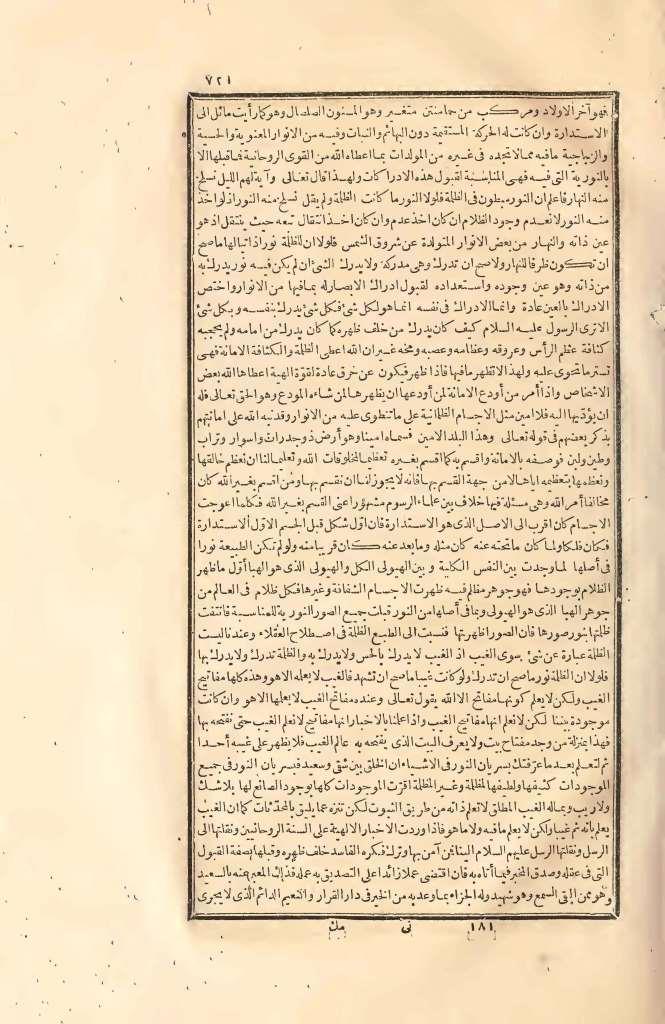 ٧٢١
فهو آخر الاولاد ومركب من حما منتن متغير وهو المسنون الصلصال وهو كما رأيت مائل الى
الاستدارة وان كانت له الحركة المستقيمة دون البهائم والنبات وفيه من الانوار المعنوية والحسية
والزجاجية ما فيه مما لا تجده فى غيره من المولدات بما اعطاه الله من القوى الروحانية فما قبلها الا
بالنورية التى فيه فهى المناسبة لقبول هذه الادراكات ولهذا قال تعالى وآية لهم الليل نسلخ
منه النهار فاعلم ان النور مبطون فى الظلمة فلولا النور ما كانت الظلمة ولم يقل نسلخ منه النور اذ لو اخذ
منه النور لانعدم وجود الظلام ان كان اخذ عدم وان كان اخذ انتقال تبعه حيث ينتقل اذ هو
عين ذاته والنهار من بعض الانوار المتولدة عن شروق الشمس فلولا ان للظلمة نورا ذاتيا لها ما صح
ان تكون ظرفا للنهار ولا صح ان تدرك وهى مدركة ولا يدرك الشئ ان لم يكن فيه نور يدرك به
من ذاته وهو عين وجوده واستعداده لقبول ادراك الابصار له بما فيها من الانوار واختص
الادراك بالعين عادة وانما الادراك فى نفسه انما هو لكل شئ فكل شئ يدرك بنفسه وبكل شئ
الا ترى الرسول عليه السلام كيف كان يدرك من خلف ظهره كما كان يدرك من امامه ولم يحجبه
كثافة عظم الرأس وعروقه وعظامه وعصبه ومخه غير ان الله اعطى الظلمة والكثافة الامانة فهى
تستر ما تحوى عليه ولهذا لا تظهر ما فيها فاذا ظهر فيكون عن خرق عادة لقوة الهية اعطاها الله بعض
الاشخاص واذا أمر من أودع الامانة لمن أودعها ان يظهرها لمن شاءه المودع وهو الحق تعالى فله
ان يؤديها اليه فلا امين مثل الاجسام الظلمانية على ما تنطوى عليه من الانوار وقد نبه الله على امانتهم
بذكر بعضهم فى قوله تعالى وهذا البلد الامين فسماه امينا وهو أرض ذو جدران واسوار وتراب
وطين ولبن فوصفه بالامانة واقسم به كما اقسم بغيره تعظيما لمخلوقات الله وتعليما لنا ان نعظم خالقها
ونعظمها بتعظيمه اياها لا من جهة القسم بها فانه لا يجوز لنا ان نقسم بها ومن اقسم بغير الله كان
مخالفا أمر الله وهى مسئلة فيها خلاف بين علماء الرسوم مشهور اعنى القسم بغير الله فكلما اعوجت
الاجسام كان اقرب الى الاصل الذى هو الاستدارة فان اول شكل قبل الجسم الاول الاستدارة
فكان فلكا ولما كان ما تحته عنه كان مثله وما بعد عنه كان قريبا منه ولو لم تكن الطبيعة نورا
فى أصلها لما وجدت بين النفس الكلية و بين الهيولى الكل والهيولى الذى هو الهبا أول ما ظهر
الظلام بوجودها فهو جوهر مظلم فيه ظهرت الاجسام الشفافة وغيرها فكل ظلام فى العالم من
جوهر الهبا الذى هو الهيولى وبما فى أصلها من النور قبلت جميع الصور النورية للمناسبة فانتفت
ظلمتها بنور صورها فان الصور اظهرتها فنسبت الى الطبع الظلمة فى اصطلاح العقلاء وعندنا ليست
الظلمة عبارة عن شئ سوى الغيب اذ الغيب لا يدرك بالحس ولا يدرك به والظلمة تدرك ولا يدرك بها
فلولا ان الظلمة نور ما صح ان تدرك ولو كانت غيبا ما صح ان تشهد فالغيب لا يعلمه الا هو وهذه كلها مفاتيح
الغيب ولكن لا يعلم كونها مفاتح الا الله يقول تعالى وعنده مفاتح الغيب لا يعلمها الا هو وان كانت
موجودة بيننا لكن لا نعلم انها مفاتيح الغيب واذا علمنا بالاخبار انها مفاتيح لا نعلم الغيب حتى نفتحه بها
فهذا بمنزلة من وجد مفتاح بيت ولا يعرف البيت الذى يفتحه به عالم الغيب فلا يظهر على غيبه أحدا
ثم لتعلم بعد ما عرفتك بسريان النور فى الاشياء ان الخلق بين شقى وسعيد فبسريان النور فى جميع
الموجودات كثيفها ولطيفها المظلمة وغير المظلمة اقرت الموجودات كلها بوجود الصانع لها بلا شك
ولا ريب وبما له الغيب المطلق لا تعلم ذاته من طريق الثبوت لكن تنزه عما يليق بالمحدثات كما ان الغيب
يعلم بانه ثم غيبا ولكن لا يعلم ما فيه ولا ما هو فاذا وردت الاخبار الالهية على السنة الروحانيين ونقلتها الى
الرسل ونقلتها الرسل عليهم السلام الينا فمن آمن بها وترك فكره الفاسد خلف ظهره وقبلها بصفة القبول
التى فى عقله وصدق المخبر فيما أتاه به فان اقتضى عملا زائدا على التصديق به عمله فذلك المعبر عنه بالسعيد
وهو ممن القى السمع وهو شهيد وله الجزاء بما وعد به من الخير فى دار القرار والنعيم الدائم الذى لا يجرى
١٨١ نى مك